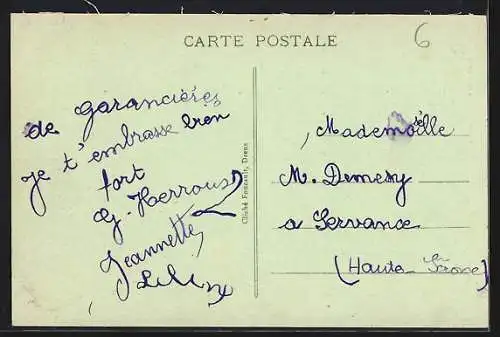 CARTE POSTALE
6
de Garancières
je t'embrasse bien
fort
G. Herrous
Jeannette
Cliché Foucault, Dreux
Mademoiselle
M. Demesy
a Servance
(Haute-Saone)